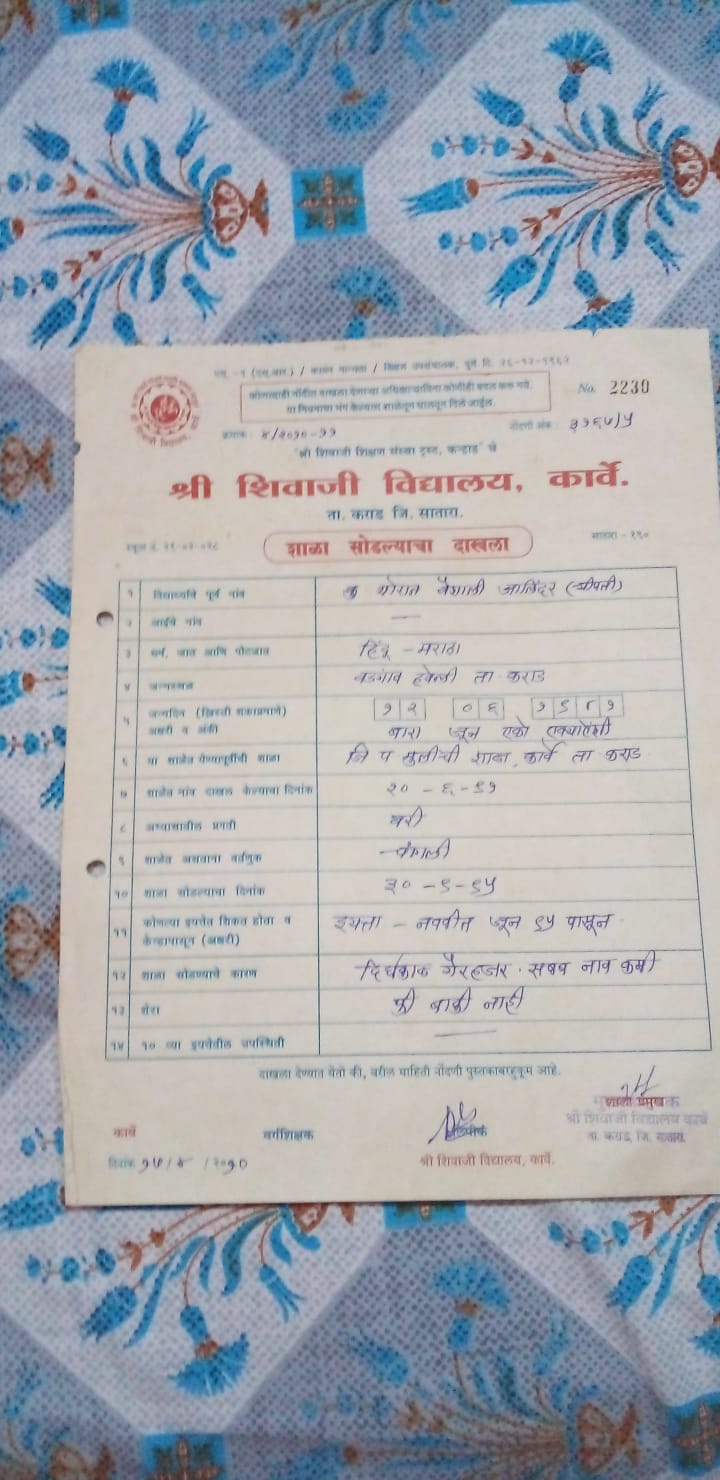 एस् -१ (एस्.आर) / कायम मान्यता / शिक्षण उपसंचालक, पुणे दि. २६-१२-१९६२
कोणत्याही नोंदीत दाखला देणाऱ्या अधिकाऱ्याविना कोणीही बदल करू नये.
या नियमाचा भंग केल्यास शाळेतून घालवून दिले जाईल.
No. 2230
क्रमांक : ४/२०१०-११
नोंदणी अंक : ३१६५/५
'श्री शिवाजी शिक्षण संस्था ट्रस्ट, कऱ्हाड' चे
श्री शिवाजी विद्यालय, कार्वे.
ता. कराड जि. सातारा.
शाळा सोडल्याचा दाखला
सातारा - १९०
१ विद्यार्थ्याचे पूर्ण नांव कु थोरात वैशाली जालिंदर (श्रीपती)
२ आईचे नांव —
३ धर्म, जात आणि पोटजात हिंदू - मराठा
४ जन्मस्थळ वडगाव हवेली ता. कराड
५ जन्मदिन (ख्रिस्ती शकाप्रमाणे) अक्षरी व अंकी १२ ०६ १९८१
बारा जून एको एक्याऐंशी
६ या शाळेत येण्यापूर्वीची शाळा जि प मुलींची शाळा, कार्वे ता कराड
७ शाळेत नांव दाखल केल्याचा दिनांक २० - ६ - ९१
८ अभ्यासातील प्रगती बरी
९ शाळेत असताना वर्तणूक चांगली
१० शाळा सोडल्याचा दिनांक ३० - ९ - ९५
११ कोणत्या इयत्तेत शिकत होता व केव्हापासून (अक्षरी) इयत्ता - नववीत जून ९५ पासून
१२ शाळा सोडण्याचे कारण दिर्घकाळ गैरहजर. सबब नाव कमी
१३ शेरा फी बाकी नाही
१४ १० व्या इयत्तेतील उपस्थिती —
दाखला देण्यात येतो की, वरील माहिती नोंदणी पुस्तकाबरहुकूम आहे.
कार्वे वर्गशिक्षक
शाखा प्रमुख
श्री शिवाजी विद्यालय कार्वे
ता. कराड, जि. सातारा
दिनांक १५/४/२०१० श्री शिवाजी विद्यालय, कार्वे.